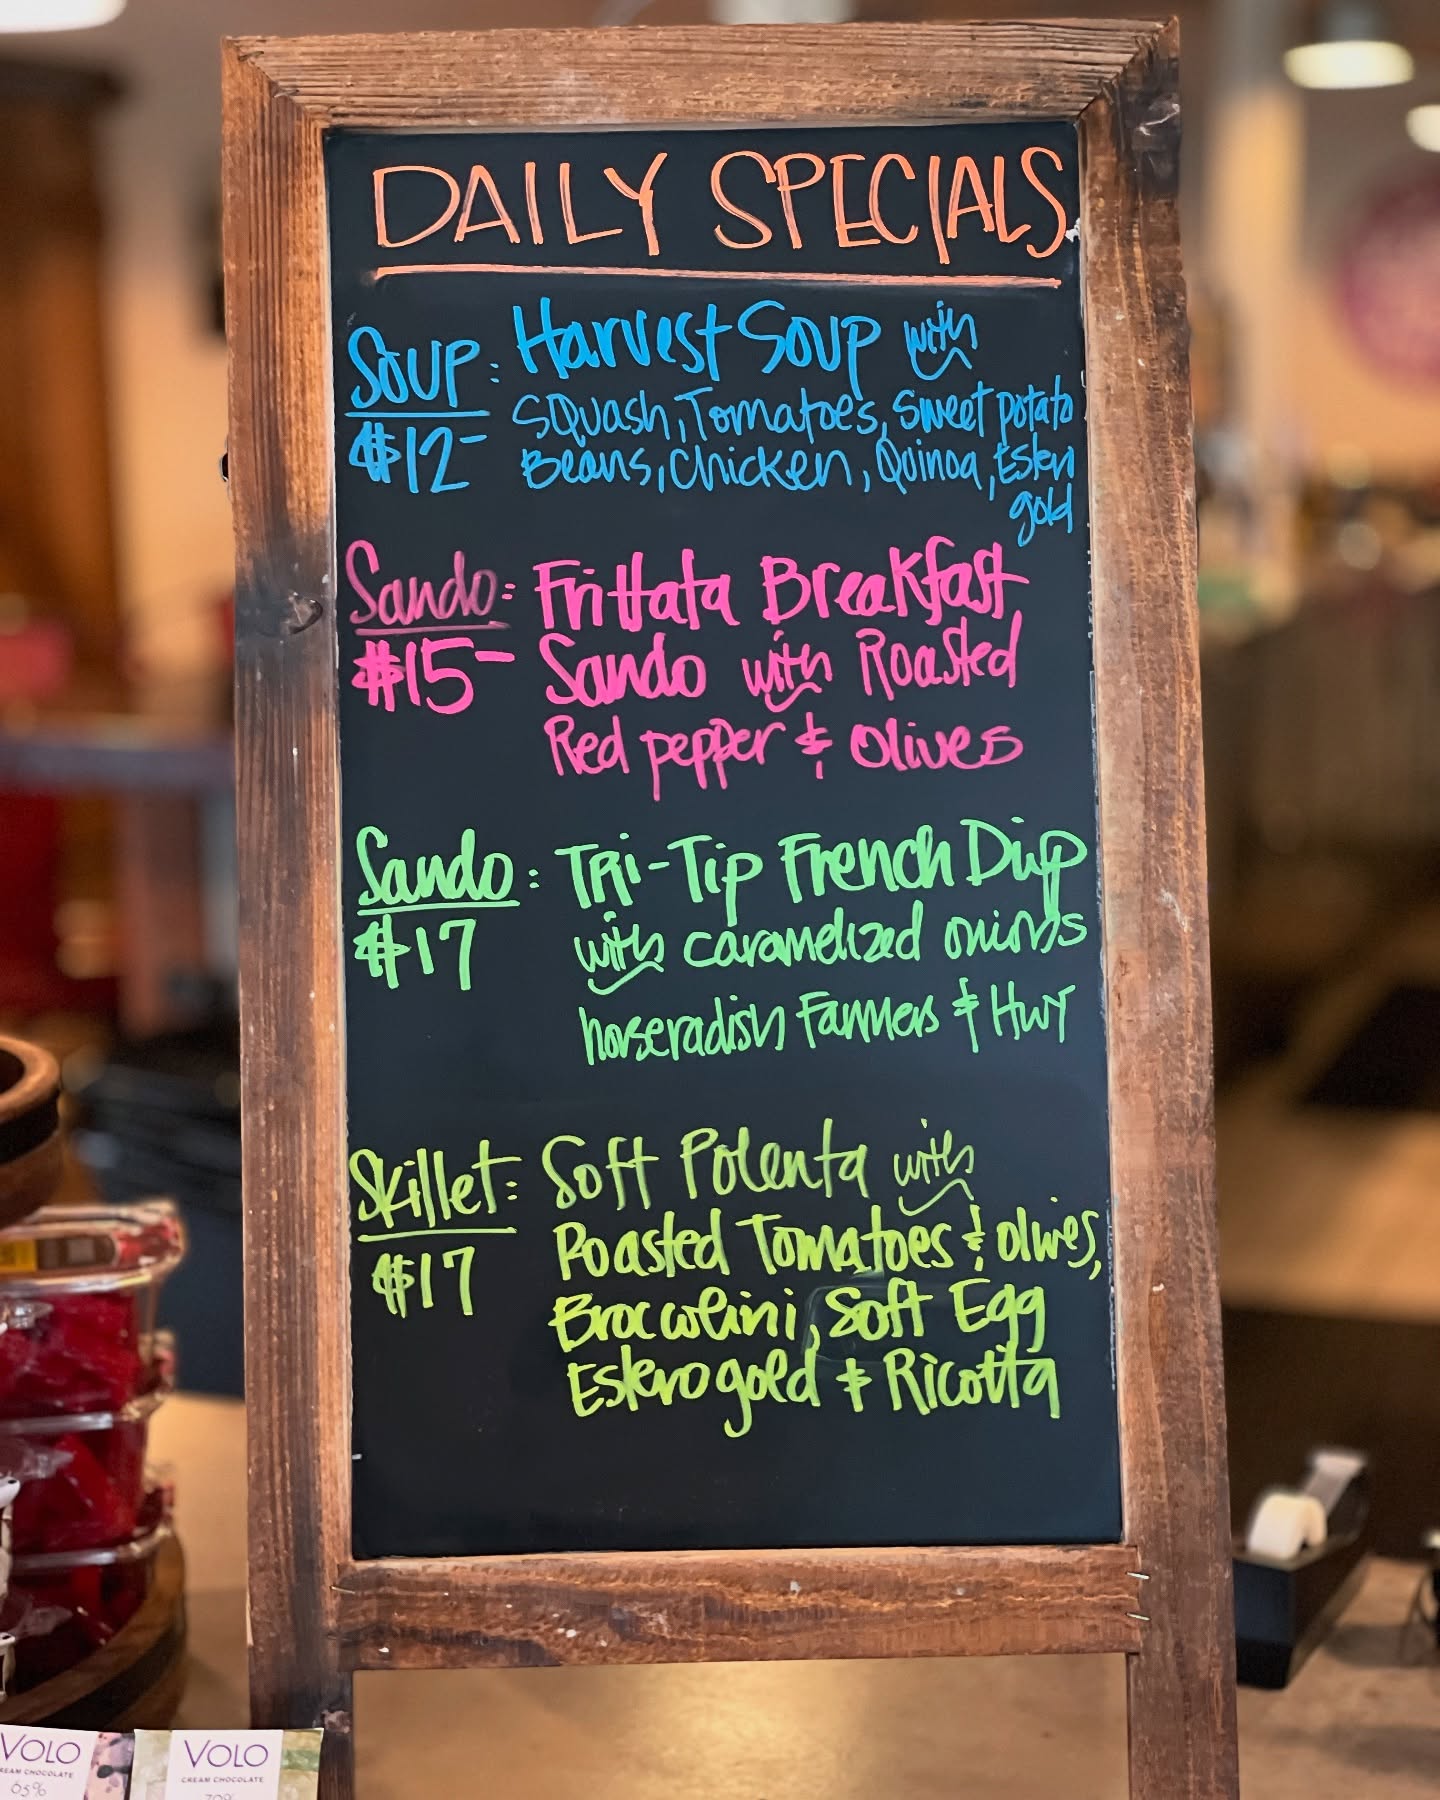 DAILY SPECIALS
SOUP: Harvest Soup with
$12- SQuash, Tomatoes, Sweet potato
Beans, Chicken, Quinoa, Estero
gold
Sando: Frittata Breakfast
$15- Sando with Roasted
Red pepper & olives
Sando: TRi-Tip French Dip
$17 with caramelized onions
horseradish Farmers & Hwy
Skillet: Soft Polenta with
$17 Roasted Tomatoes & olives,
Broccolini, Soft Egg
Estero gold & Ricotta
VOLO
CREAM CHOCOLATE
65%
VOLO
CREAM CHOCOLATE